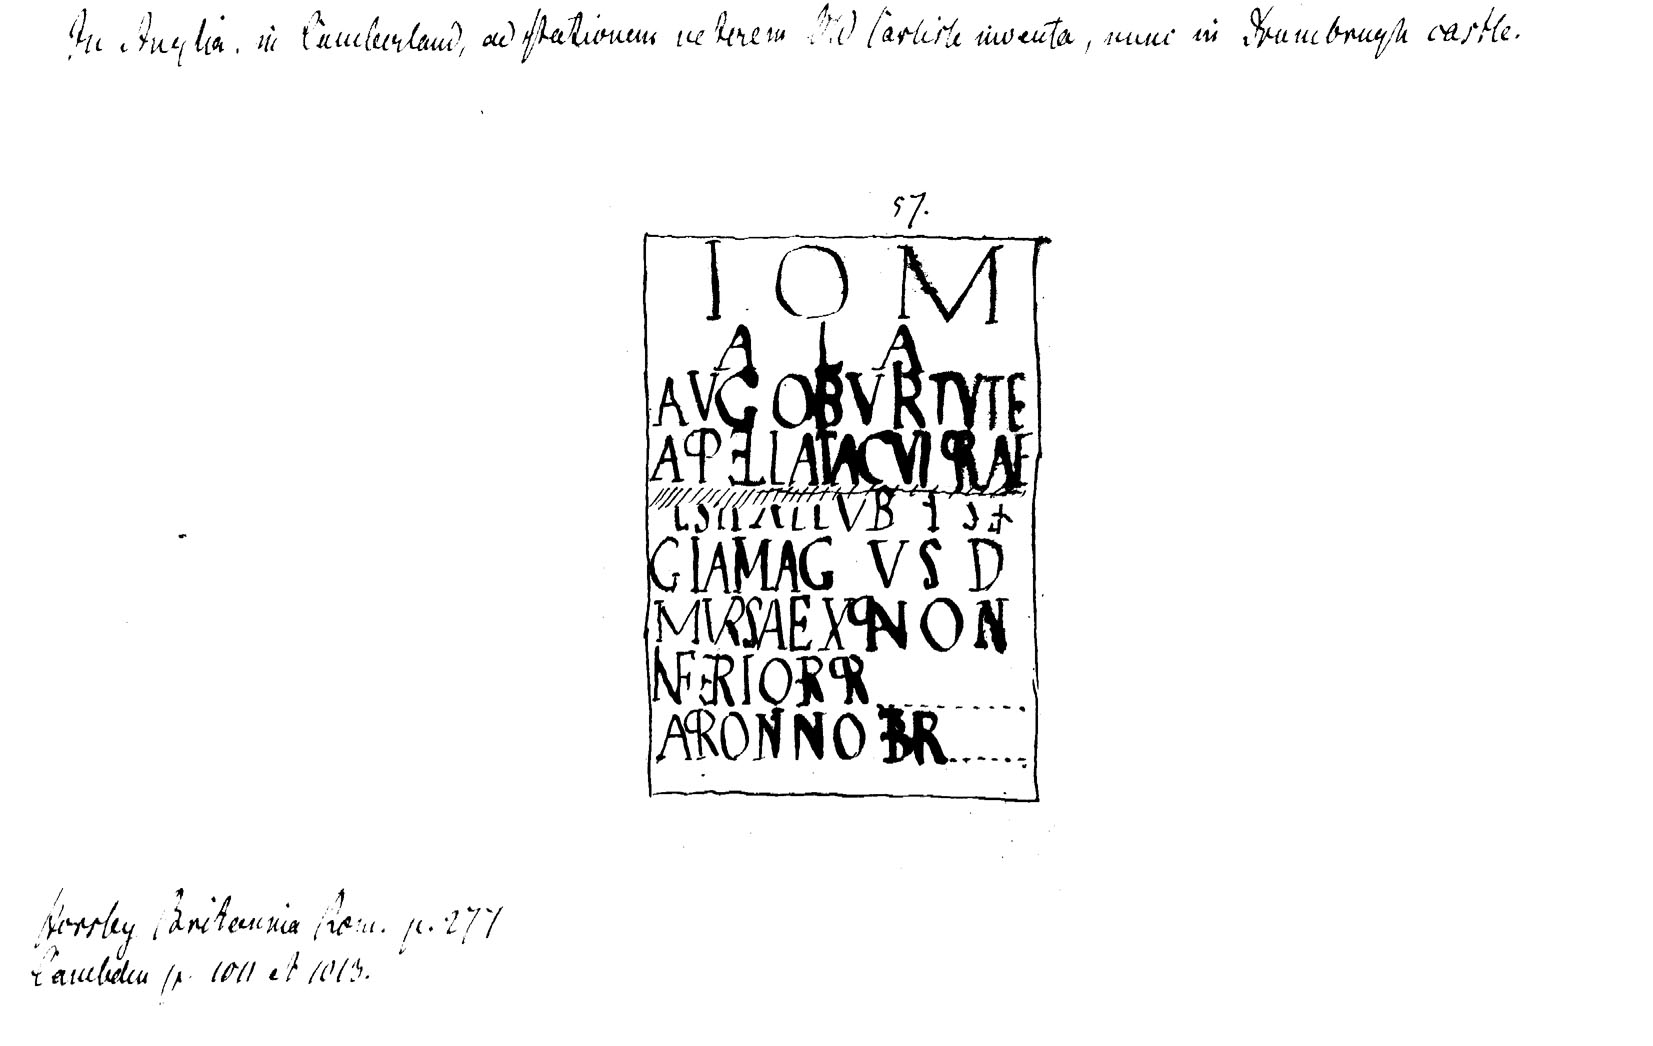 In Anglia. in Cumberland, ad stationem veterem Old Carlisle inventa, nunc in Drumbrugh castle.
57.
I O M
A L A
AVG OB VIRTVTE
APPELLATA CVI PRAE
VB T
GIA MAG VS D
MVRSA EX PANON
INFERIOR PR
APRONIANO ET BR
Horsley Britannia Rom. p. 277
Cambden p. 1011 et 1013.